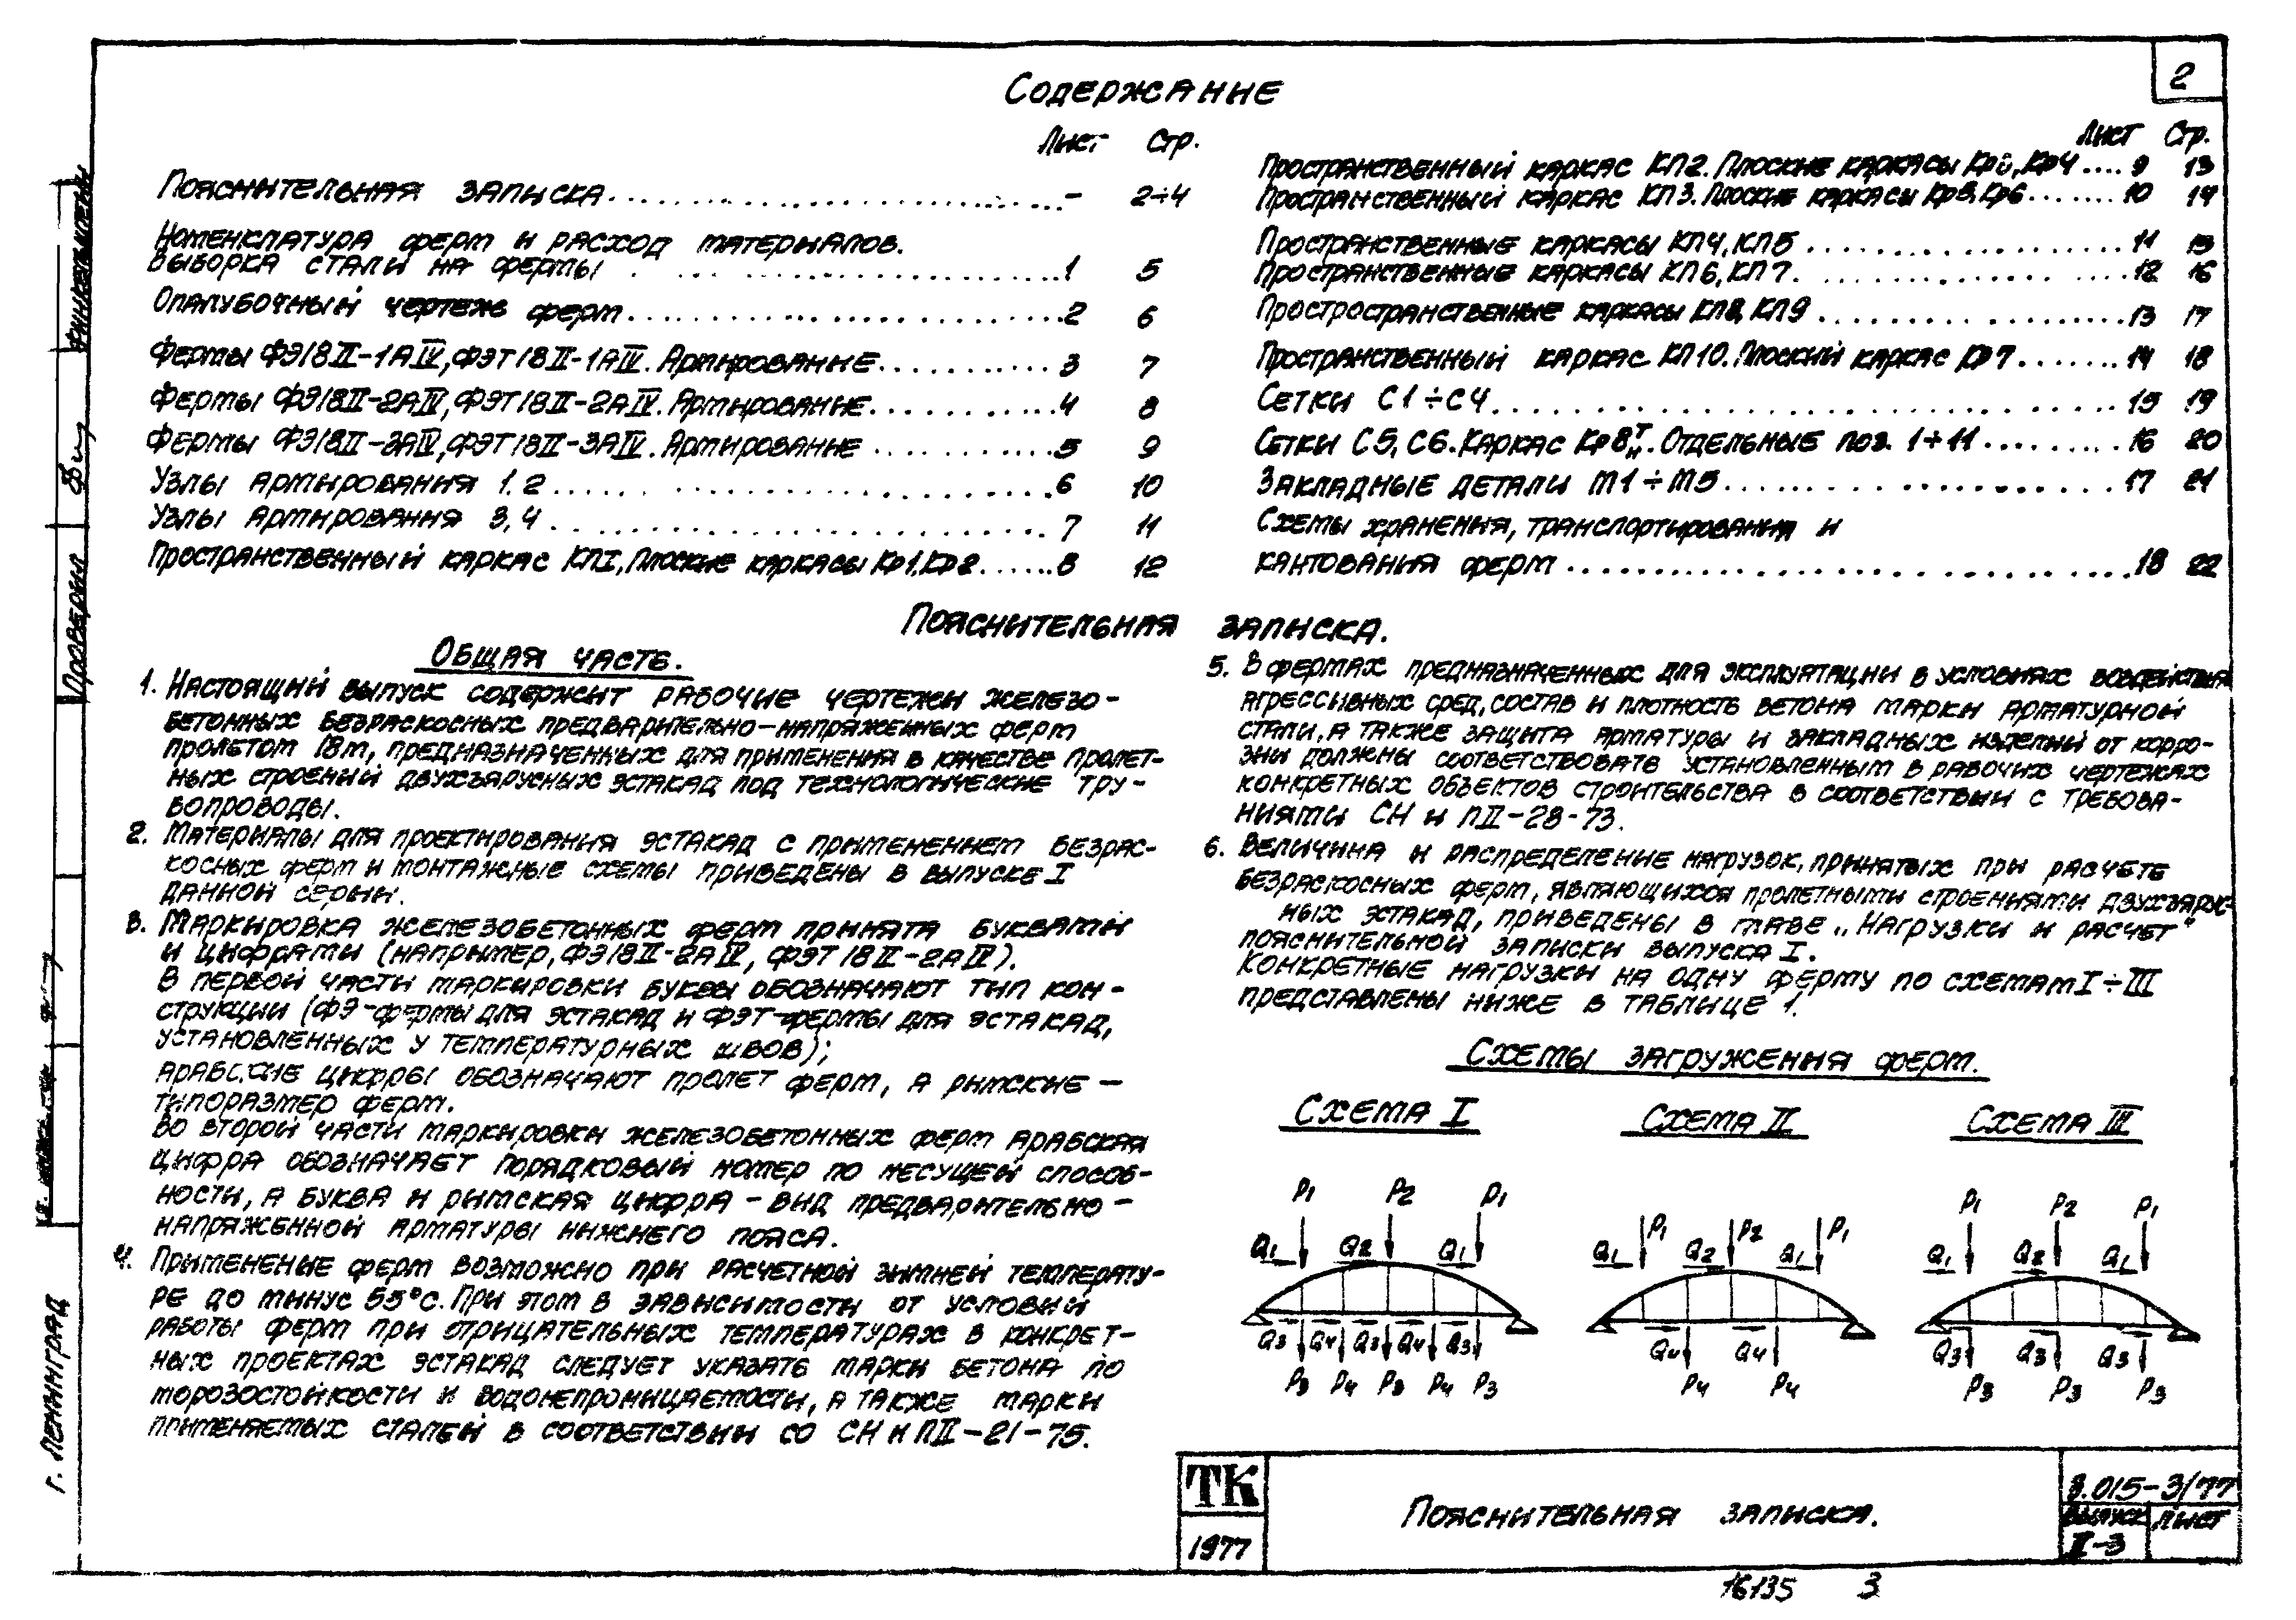 2
Содержание
Лист Стр.
Пояснительная записка - 2÷4
Номенклатура ферм и расход материалов.
Выборка стали на фермы 1 5
Опалубочный чертеж ферм 2 6
Фермы ФЭ18II-1АIV, ФЭТ18II-1АIV. Армирование 3 7
Фермы ФЭ18II-2АIV, ФЭТ18II-2АIV. Армирование 4 8
Фермы ФЭ18II-3АIV, ФЭТ18II-3АIV. Армирование 5 9
Узлы армирования 1.2 6 10
Узлы армирования 3,4 7 11
Пространственный каркас КПI, Плоские каркасы Кр1, Кр2 8 12
Лист Стр.
Пространственный каркас КП2. Плоские каркасы Кр4 9 13
Пространственный каркас КП3. Плоские каркасы Кр6 10 14
Пространственные каркасы КП4, КП5 11 15
Пространственные каркасы КП6, КП7. 12 16
Простространственные каркасы КП8, КП9 13 17
Пространственный каркас КП10. Плоский каркас Кр7 14 18
Сетки С1÷С4 15 19
Сетки С5, С6. Каркас Кр8 т/н. Отдельные поз. 1÷11 16 20
Закладные детали М1÷М5 17 21
Схемы хранения, транспортирования и
кантования ферм 18 22
Пояснительная записка.
Общая часть.
1. Настоящий выпуск содержит рабочие чертежи железо-
бетонных безраскосных предварительно-напряженных ферм
пролетом 18м, предназначенных для применения в качестве пролет-
ных строений двухъярусных эстакад под технологические тру-
бопроводы.
2. Материалы для проектирования эстакад с применением безрас-
косных ферм и монтажные схемы приведены в выпуске I
данной серии.
3. Маркировка железобетонных ферм принята буквами
и цифрами (например, ФЭ18II-2АIV, ФЭТ18II-2АIV).
В первой части маркировки буквы обозначают тип кон-
струкции (ФЭ-фермы для эстакад и ФЭТ-фермы для эстакад,
установленных у температурных швов);
арабские цифры обозначают пролет ферм, а римские -
типоразмер ферм.
Во второй части маркировки железобетонных ферм арабская
цифра обозначает порядковый номер по несущей способ-
ности, а буква и римская цифра - вид предварительно-
напряженной арматуры нижнего пояса.
4. Применение ферм возможно при расчетной зимней температу-
ре до минус 55°С. При этом в зависимости от условий
работы ферм при отрицательных температурах в конкрет-
ных проектах эстакад следует указать марки бетона по
морозостойкости и водонепроницаемости, а также марки
применяемых сталей в соответствии со СН и ПII-21-75.
5. В фермах предназначенных для эксплуатации в условиях воздействия
агрессивных сред, состав и плотность бетона марки арматурной
стали, а также защита арматуры и закладных изделий от корро-
зии должны соответствовать установленным в рабочих чертежах
конкретных объектов строительства в соответствии с требова-
ниями СН и ПII-28-73.
6. Величина и распределение нагрузок, принятых при расчете
безраскосных ферм, являющихся пролетными строениями двухъярус-
ных эстакад, приведены в главе „Нагрузки и расчет"
пояснительной записки выпуска I.
Конкретные нагрузки на одну ферму по схемам I÷III
представлены ниже в таблице 1.
Схемы загружения ферм.
Схема I Схема II Схема III
P1 P2 P1
Q1 Q2 Q1
Q3 Q4 Q3 Q4 Q3
P3 P4 P3 P4 P3
P1 P2 P1
Q1 Q2 Q1
Q4 Q4
P4 P4
P1 P2 P1
Q1 Q2 Q1
Q3 Q3 Q3
P3 P3 P3
ТК
1977
Пояснительная записка.
3.015-3/77
Выпуск Лист
II-3
16135 3
Финкельштейн
Проверил
г. Ленинград